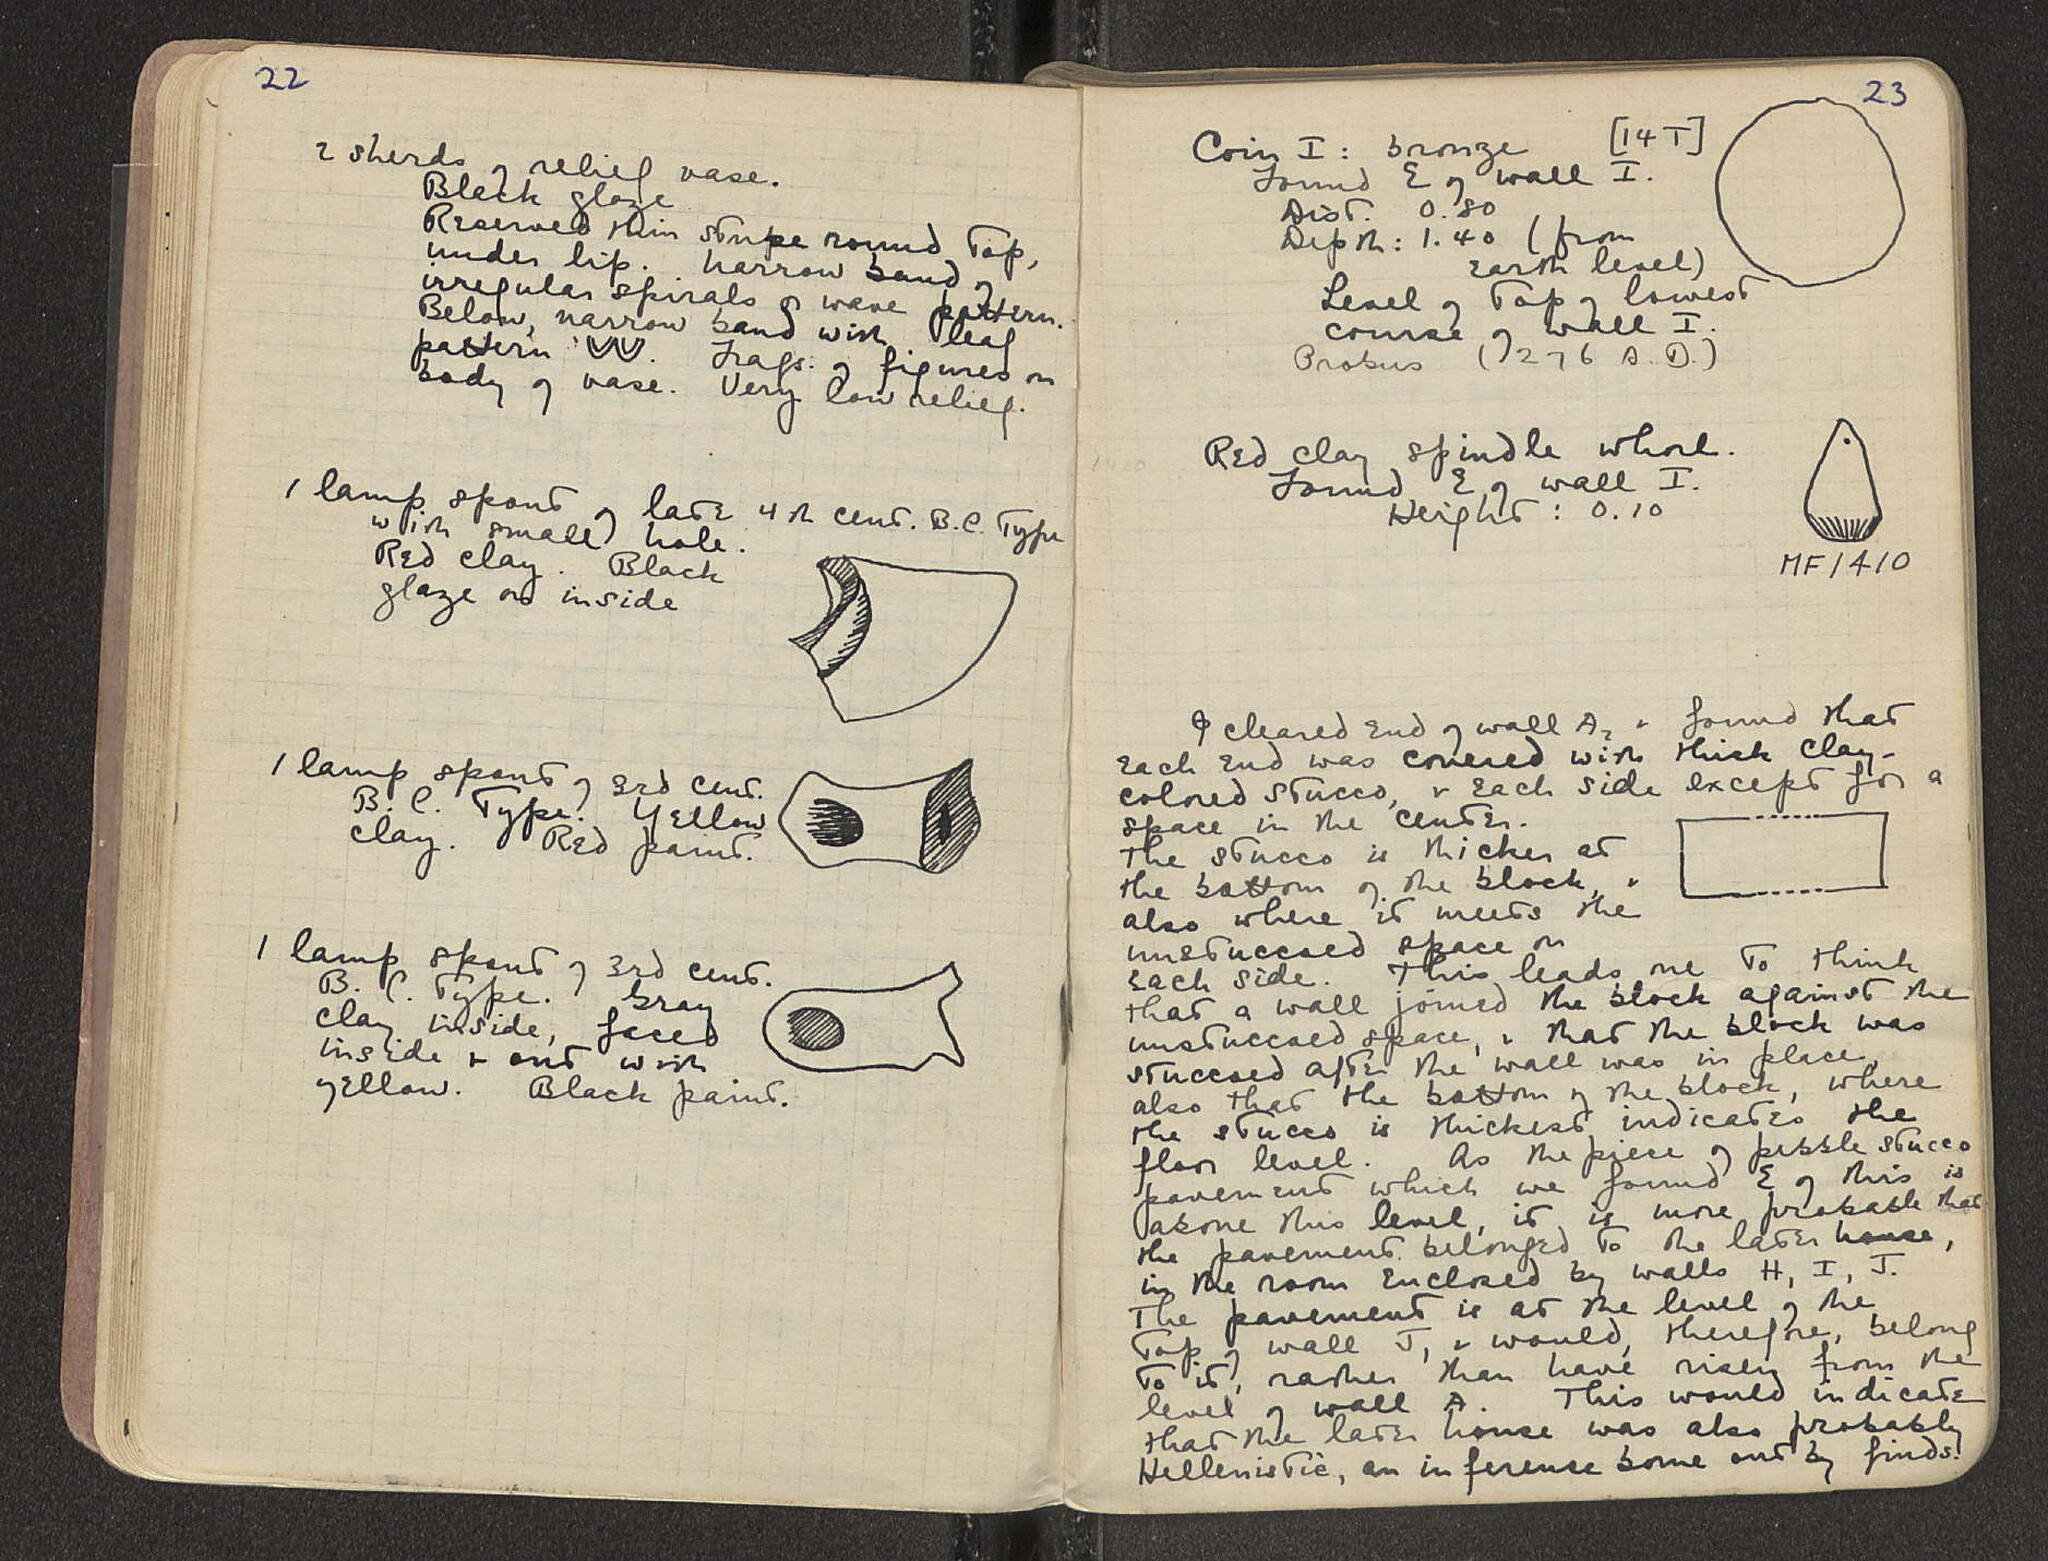 22
2 sherds of relief vase.
Black glaze
Reserved thin stripe round top,
under lip. Narrow band of
irregular spirals or wave pattern.
Below, narrow band with leaf
pattern. Frags. of figures on
body of vase. Very low relief.
1 lamp spout of late 4th cent. B.C. type
with small hole.
Red clay. Black
glaze on inside
1 lamp spout of 3rd cent.
B.C. type. Yellow
clay. Red paint.
1 lamp spout of 3rd cent.
B.C. type. Gray
clay inside, faced
inside & out with
yellow. Black paint.
23
Coin I: bronze [14 T]
Found E of wall I.
Dist. 0.80
Depth: 1.40 (from
earth level)
Level of top of lowest
course of wall I.
Probus (? 276 A.D.)
Red clay spindle whorl.
Found E of wall I.
Height: 0.10
MF 1410
I cleared end of wall A2 & found that
each end was covered with thick clay-
colored stucco, & each side except for a
space in the center.
The stucco is thicker at
the bottom of the block, &
also where it meets the
unstuccoed space on
each side. This leads me to think
that a wall joined the block against the
unstuccoed space, & that the block was
stuccoed after the wall was in place,
also that the bottom of the block, where
the stucco is thickest indicates the
floor level. As the piece of pebble stucco
pavement which we found E of this is
above this level, it is more probable that
the pavement belonged to the later house,
in the room enclosed by walls H, I, J.
The pavement is at the level of the
top of wall J, & would, therefore, belong
to it, rather than have risen from the
level of wall A. This would indicate
that the later house was also probably
Hellenistic, an inference borne out by finds.